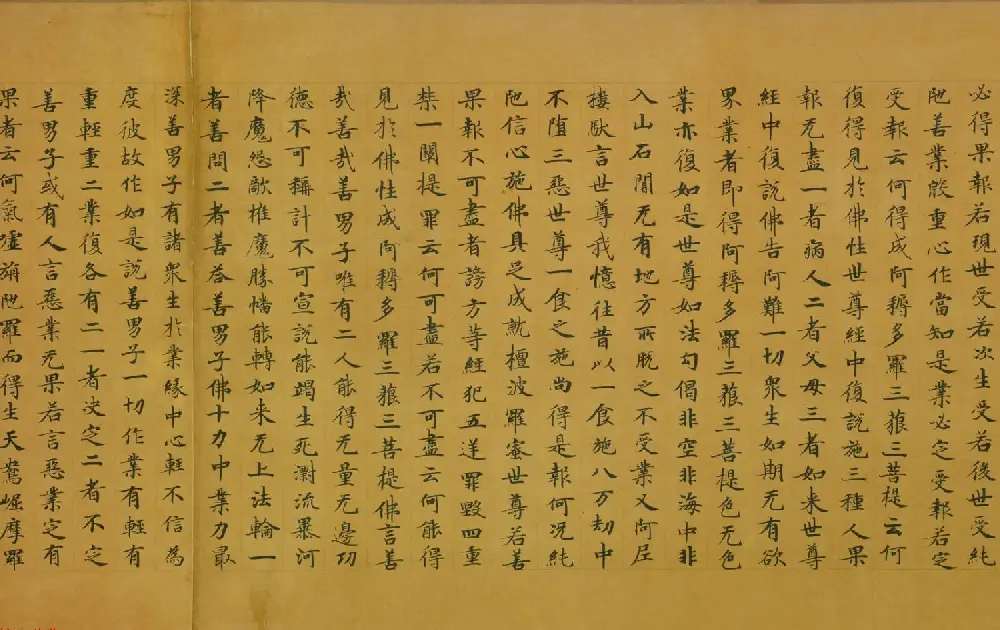 必得果報若現世受若次生受若後世受純
陁善業慇重心作當知是業必定受報若定
受報云何得成阿耨多羅三藐三菩提云何
復得見於佛性世尊經中復說施三種人果
報无盡一者病人二者父母三者如来世尊
經中復說佛告阿難一切衆生如期无有欲
界業者即得阿耨多羅三藐三菩提色无色
業亦復如是世尊如法句偈非空非海中非
入山石間无有地方所脫之不受業又阿𡰱
樓馱言世尊我憶往昔以一食施八万劫中
不墮三惡世尊一食之施尚得是報何况純
陁信心施佛具足成就檀波羅蜜世尊若善
果報不可盡者謗方等經犯五逆罪毀四重
禁一闡提罪云何可盡若不可盡云何能得
見於佛性成阿耨多羅三藐三菩提佛言善
哉善哉善男子唯有二人能得无量无邊功
德不可稱計不可宣說能竭生死澍流暴河
降魔怨敵摧魔勝幢能轉如来无上法輪一
者善問二者善荅善男子佛十力中業力最
深善男子有諸衆生於業緣中心輕不信為
度彼故作如是說善男子一切作業有輕有
重輕重二業復各有二一者决定二者不定
善男子或有人言惡業无果若言惡業定有
果者云何氣墟旃陁羅而得生天鴦崛摩羅